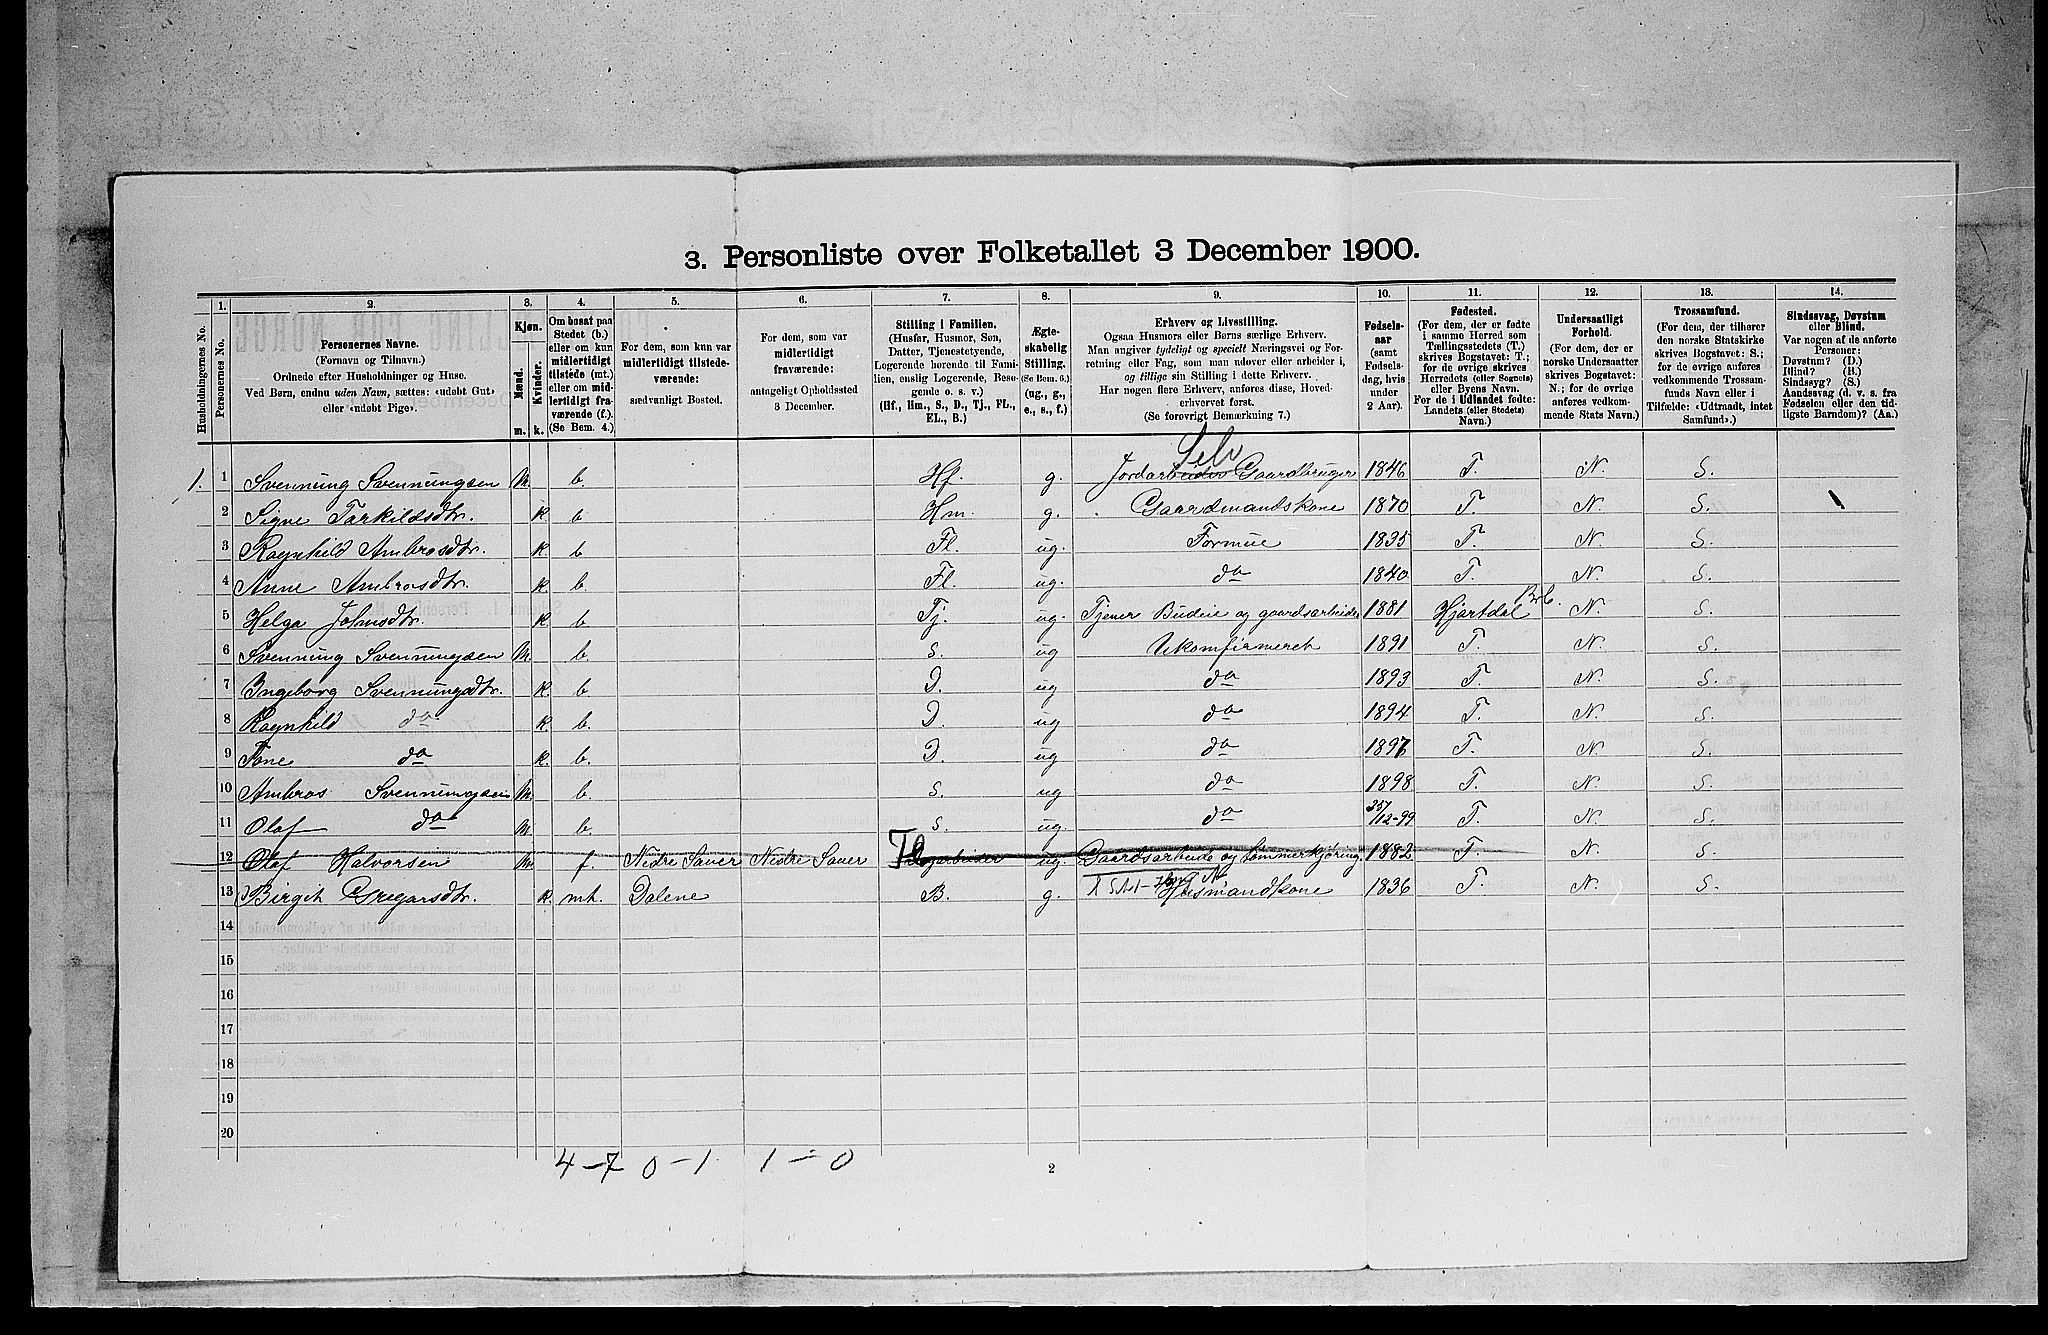 3. Personliste over Folketallet 3 December 1900.
Husholdningernes No.
1.
Personernes No.
2.
Personernes Navne.
(Fornavn og Tilnavn.)
Ordnede efter Husholdninger og Huse.
Ved Børn, endnu uden Navn, sættes: «udøbt Gut»
eller «udøbt Pige».
3.
Kjøn.
Mænd.
Kvinder.
m. k.
4.
Om bosat paa
Stedet (b.)
eller om kun
midlertidigt
tilstede (mt.)
eller om mid-
lertidigt fra-
værende (f.).
(Se Bem. 4.)
5.
For dem, som kun var
midlertidigt tilstede-
værende:
sædvanligt Bosted.
6.
For dem, som var
midlertidigt
fraværende:
antageligt Opholdssted
3 December.
7.
Stilling i Familien.
(Husfar, Husmor, Søn,
Datter, Tjenestetyende,
Logerende hørende til Fami-
lien, enslig Logerende, Besø-
gende o. s. v.)
(Hf., Hm., S., D., Tj., FL.,
EL., B.)
8.
Ægte-
skabelig
Stilling.
(Se Bem. 6.)
(ug., g.,
e., s., f.)
9.
Erhverv og Livsstilling.
Ogsaa Husmors eller Børns særlige Erhverv.
Man angiver tydeligt og specielt Næringsvei og For-
retning eller Fag, som man udøver eller arbeider i,
og tillige sin Stilling i dette Erhverv.
Har nogen flere Erhverv, anføres disse, Hoved-
erhvervet først.
(Se forøvrigt Bemærkning 7.)
10.
Fødsels-
aar
(samt
Fødsels-
dag, hvis
under
2 Aar).
11.
Fødested.
(For dem, der er fødte
i samme Herred som
Tællingsstedets (T.)
skrives Bogstavet: T.;
for de øvrige skrives
Herredets (eller Sognets)
eller Byens Navn.
For de i Udlandet fødte:
Landets (eller Stedets)
Navn.)
12.
Undersaatligt
Forhold.
(For dem, der er
norske Undersaatter
skrives Bogstavet:
N.; for de øvrige
anføres vedkom-
mende Stats Navn.)
13.
Trossamfund.
(For dem, der tilhører
den norske Statskirke
skrives Bogstavet: S.;
for de øvrige anføres
vedkommende Trossam-
funds Navn eller i
Tilfælde: «Udtraadt, intet
Samfund».)
14.
Sindssvag, Døvstum
eller Blind.
Var nogen af de anførte
Personer:
Døvstum? (D.)
Blind? (B.)
Sindssyg? (S.)
Aandssvag (d. v. s. fra
Fødselen eller den tid-
ligste Barndom)? (Aa.)
Selv
1. 1 Svenning Svenningsen M. b. Hf. g. Jordarbeider Gaardbruger 1846 T. N. S.
2 Signe Tarkildsdtr. K. b Hm. g. Gaardmandskone 1870 T. N. S.
3 Ragnhild Ambrosdtr. K. b Fl. ug. Formue 1835 T. N. S.
4 Anne Ambrosdtr. K. b Fl. ug. do 1840 T. N. S.
5 Helga Johnsdtr. K b Tj. ug. Tjener Budeie og gaardsarbeider 1881 Hjartdal Brb. N. S.
6 Svenning Svenningsen M. b. S. ug Ukonfirmeret 1891 T. N. S.
7 Ingeborg Svenningsdtr. K. b. D. ug do 1893 T. N. S.
8 Ragnhild do K. b. D. ug do 1894 T. N. S.
9 Tone do K. b. D. ug do 1897 T. N. S.
10 Ambros Svenningsen M. b. S. ug do 1898 T. N. S.
11 Olaf do M b. S. ug. do /12-99 T. N. S.
12 Olaf Halvorsen M f. Nedre Saver Nedre Saver ug. Gaardsarbeide og tømmerkjøring. 1882 T. N. S.
13 Birgit Gregarsdtr. K. mt. Dalene B. g. Husmandkone 1836 T. N. S.
14
15
16
17
18
19
20
4-7 0-1 1-0
2